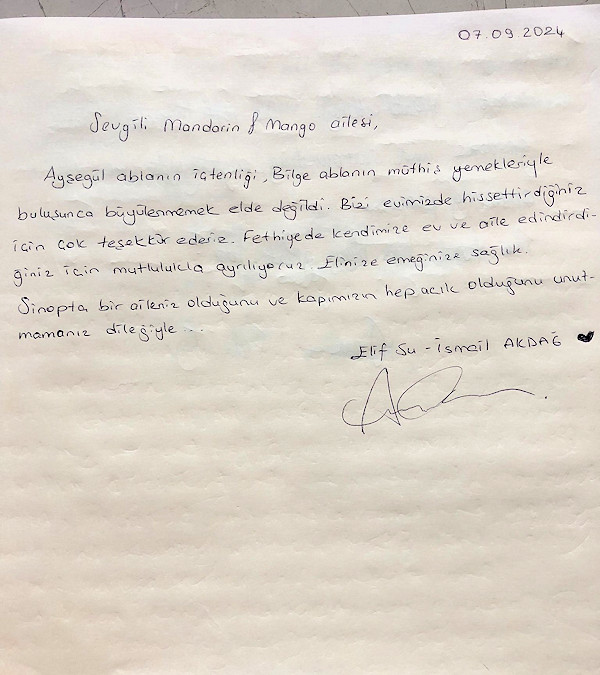 07.09.2024
Sevgili Mandarin & Mango ailesi,
Ayşegül ablanın içtenliği, Bilge ablanın müthiş yemekleriyle
buluşunca büyülenmemek elde değildi. Bizi evimizde hissettirdiğiniz
için çok teşekkür ederiz. Fethiyede kendimize ev ve aile edindirdi-
ğiniz için mutlulukla ayrılıyoruz. Elinize emeğinize sağlık.
Sinopta bir aileniz olduğunu ve kapımızın hep açık olduğunu unut-
mamanız dileğiyle...
Elif Su - İsmail AKDAĞ ♥